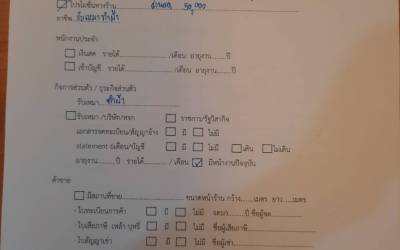 ☑ โปรโมชั่นทางร้าน ส่วนลด 50,000
อาชีพ รับเหมาทำฝ้า
พนักงานประจำ
☐ เงินสด รายได้............/เดือน อายุงาน......ปี
☐ เข้าบัญชี รายได้............/เดือน อายุงาน......ปี
กิจการส่วนตัว / ธุรกิจส่วนตัว
รับเหมา..ทำฝ้า
☐ รับเหมา /บริษัท/หจก ☐ ราชการ/รัฐวิสากิจ
เอกสารจดทะเบียน/สัญญาจ้าง ☐ มี ☐ ไม่มี
statement /บัญชี ☐ มี ☐ ไม่มี ☐ เดิน ☐ ไม่เดิน
อายุงาน.......ปี รายได้........./ เดือน ☑ มีหน้างานปัจจุบัน
ค้าขาย
☐ มีสถานที่ขาย............ขนาดหน้าร้าน กว้าง......เมตร ยาว......เมตร
- ใบทะเบียนการค้า ☐ มี ☐ ไม่มี จดมา......ปี ชื่อผู้จด.......
- ใบเสียภาษี เหล้า บุหรี่ ☐ มี ☐ ไม่มี ชื่อผู้เสียภาษี.......
- ใบสัญญาเช่า ☐ มี ☐ ไม่มี ชื่อผู้เช่า.......